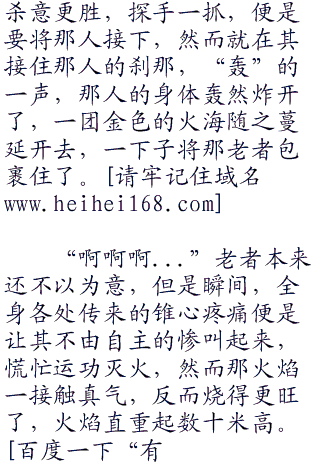 杀意更胜，探手一抓，便是
要将那人接下，然而就在其
接住那人的刹那，“轰”的
一声，那人的身体轰然炸开
了，一团金色的火海随之蔓
延开去，一下子将那老者包
裹住了。[请牢记住域名
www.heihei168.com]
“啊啊啊...”老者本来
还不以为意，但是瞬间，全
身各处传来的锥心疼痛便是
让其不由自主的惨叫起来，
慌忙运功灭火，然而那火焰
一接触真气，反而烧得更旺
了，火焰直重起数十米高。
[百度一下“有